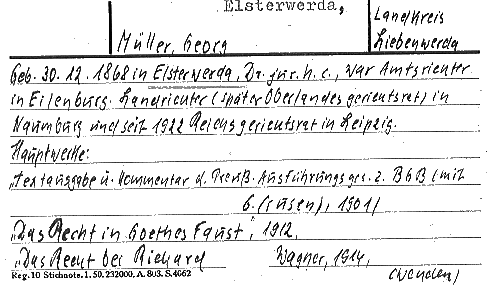 Elsterwerda,
Landkreis
Liebenwerda
Müller, Georg
Geb. 30. 12. 1868 in Elsterwerda, Dr. jur. h. c., war Amtsrichter
in Eilenburg. Landrichter (später Oberlandesgerichtsrat) in
Naumburg und seit 1922 Reichsgerichtsrat in Leipzig.
Hauptwerke:
"Textausgabe u. Kommentar d. Preuß. Ausführungsges. z. BGB (mit
G. 1901/
"Das Recht in Goethes Faust", 1912,
"Das Recht bei Richard Wagner, 1914,
Reg. 10 Stichnote. 1. 50. 232000, A. 803. S. 4062
(wenden)